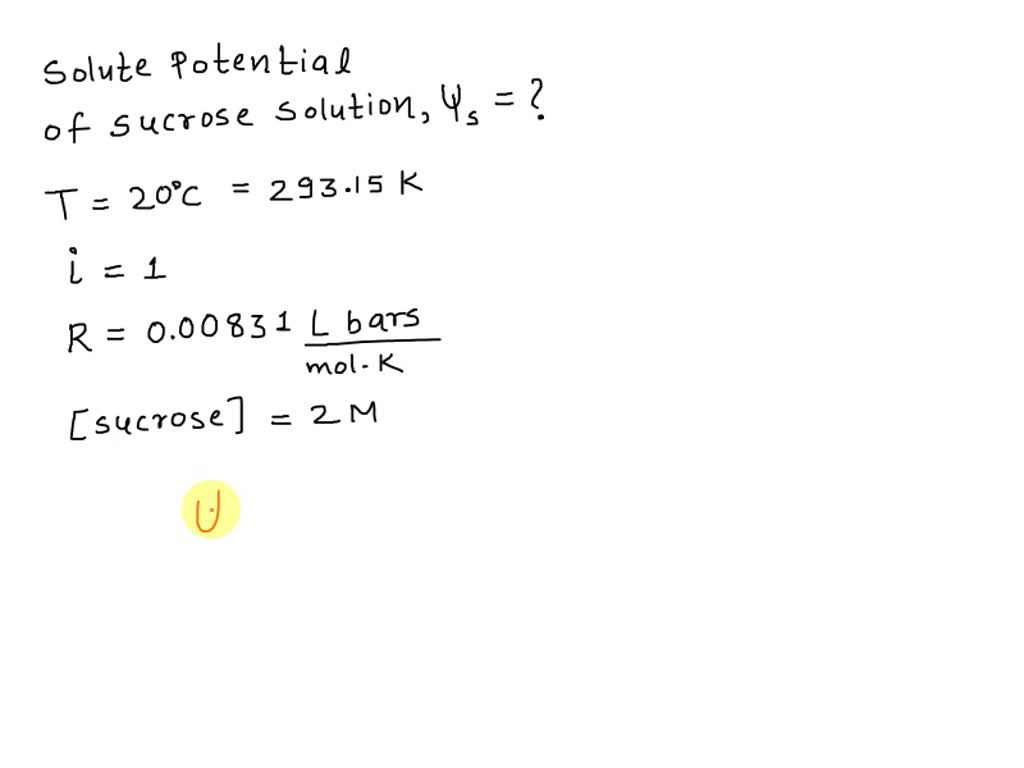 Solute Potential
of sucrose solution, Ψs = ?
T = 20°C = 293.15 K
i = 1
R = 0.00831 L bars
mol·K
[sucrose] = 2 M